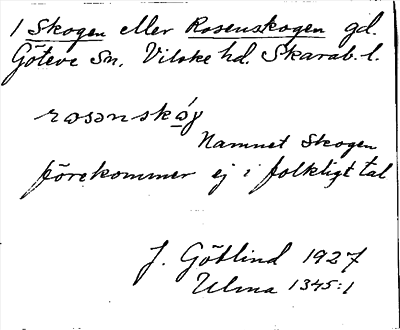 1 Skogen eller Rosenskogen gd.
Göteve Sn, Vilske hd. Skarab. l.
rosənskó̱g
Namnet Skogen
förekommer ej i folkligt tal
J. Götlind 1927
Ulma 1345:1